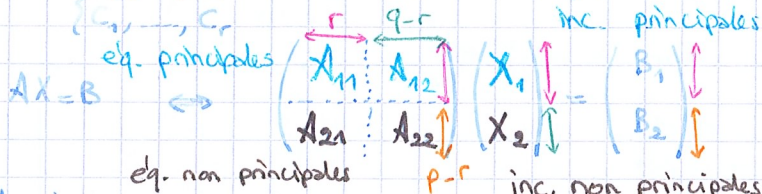 {C₁, ..., Cᵣ
r q-r inc. principales
éq. principales
AX=B ⇔ (A₁₁ A₁₂ A₂₁ A₂₂) (X₁ X₂) = (B₁ B₂)
éq. non principales p-r inc. non principales